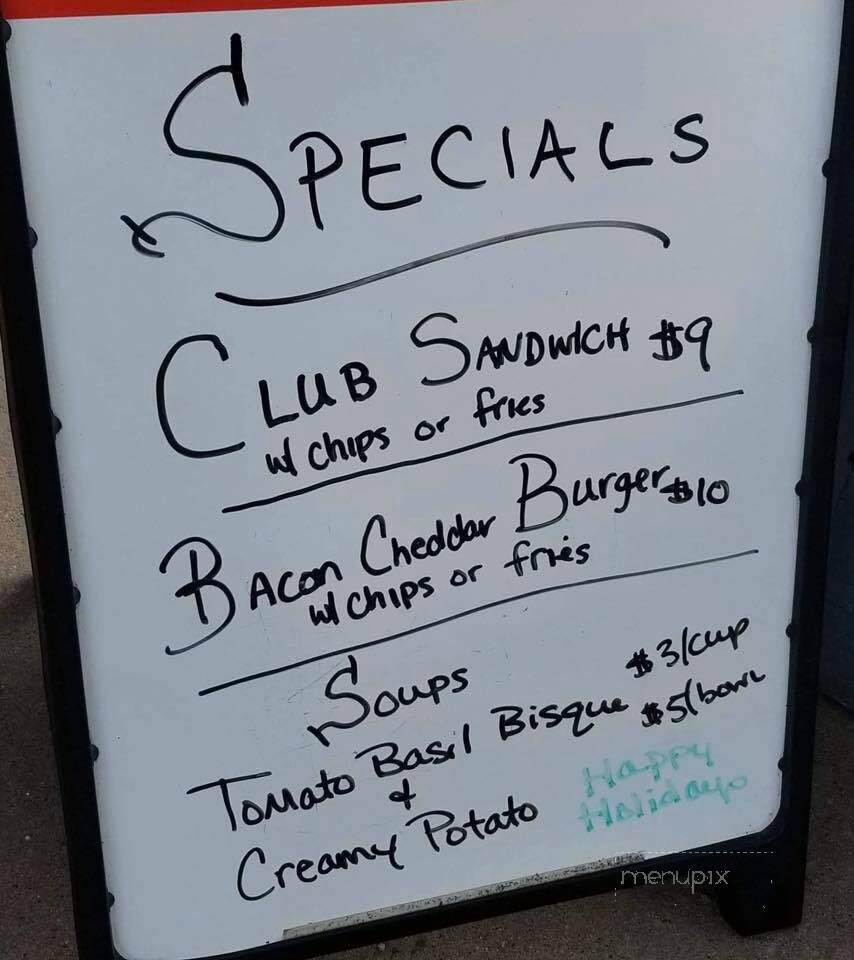 SPECIALS
CLUB SANDWICH $9
w/ chips or fries
BACON Cheddar Burger $10
w/ chips or fries
Soups
$3/cup
Tomato Basil Bisque $5/bowl
&
Creamy Potato
Happy
Holidays
menupix